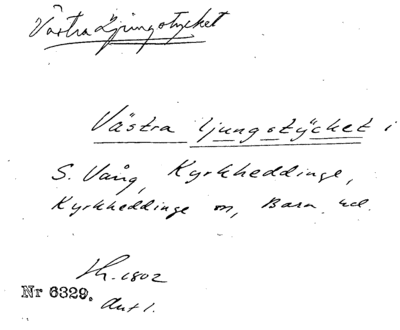 Västra Ljungstycket
Västra ljungstycket i
S. Vång, Kyrkheddinge,
Kyrkheddinge sn, Bara hd.
Sk. 1802
Nr 6329.
Ant 1.